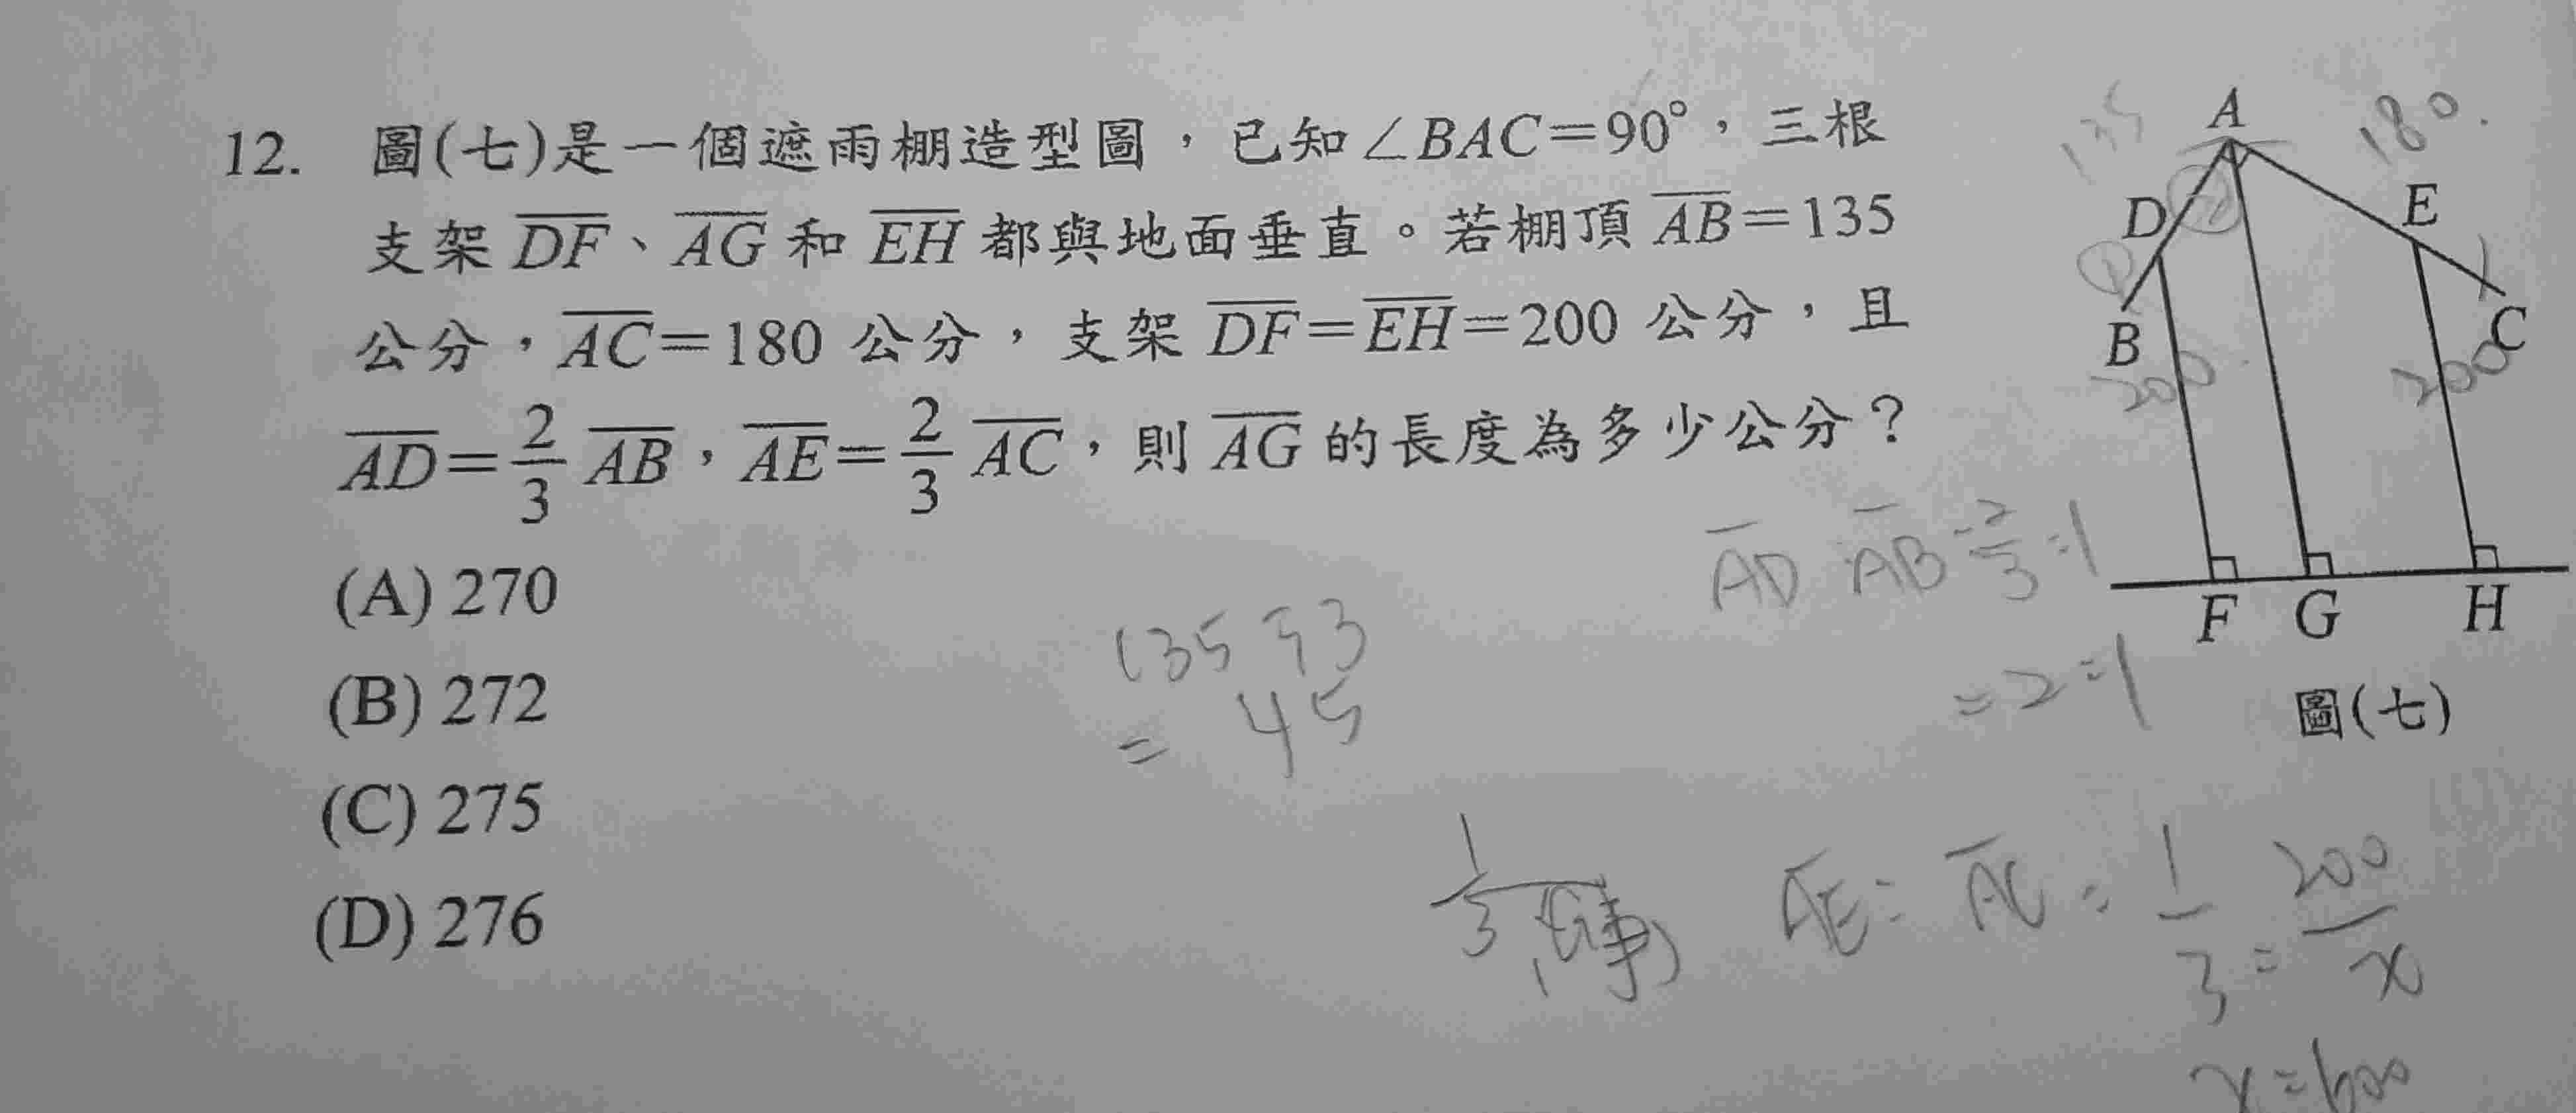 12. 圖(七)是一個遮雨棚造型圖，已知∠BAC=90°，三根
支架 DF、AG 和 EH 都與地面垂直。若棚頂 AB=135
公分，AC=180 公分，支架 DF=EH=200 公分，且
AD=2/3 AB，AE=2/3 AC，則 AG 的長度為多少公分？
(A) 270
(B) 272
(C) 275
(D) 276
135
A
180
D
2
E
1
B
C
200
200
F
G
H
圖(七)
AD AB = 2/3 : 1
= 2:1
135 ÷ 3
= 45
1/3
AE : AC = 1/3 = 200/x
x = 600